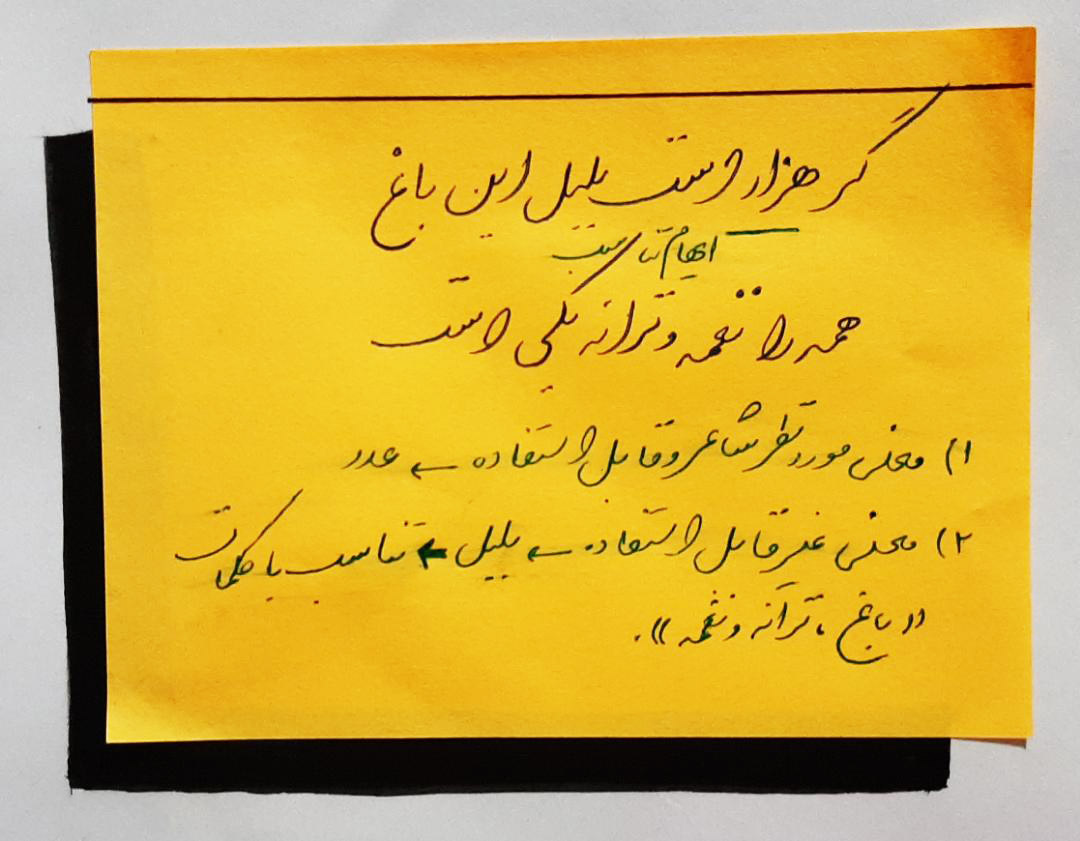 گر هزار است بلبل این باغ
ایهام تناسب
همه را نغمه و ترانه یکی است
۱) معنی مورد نظر شاعر و قابل استفاده ← عدد
۲) معنی غیر قابل استفاده ← بلبل ← تناسب با کلمات
«باغ، ترانه و نغمه».